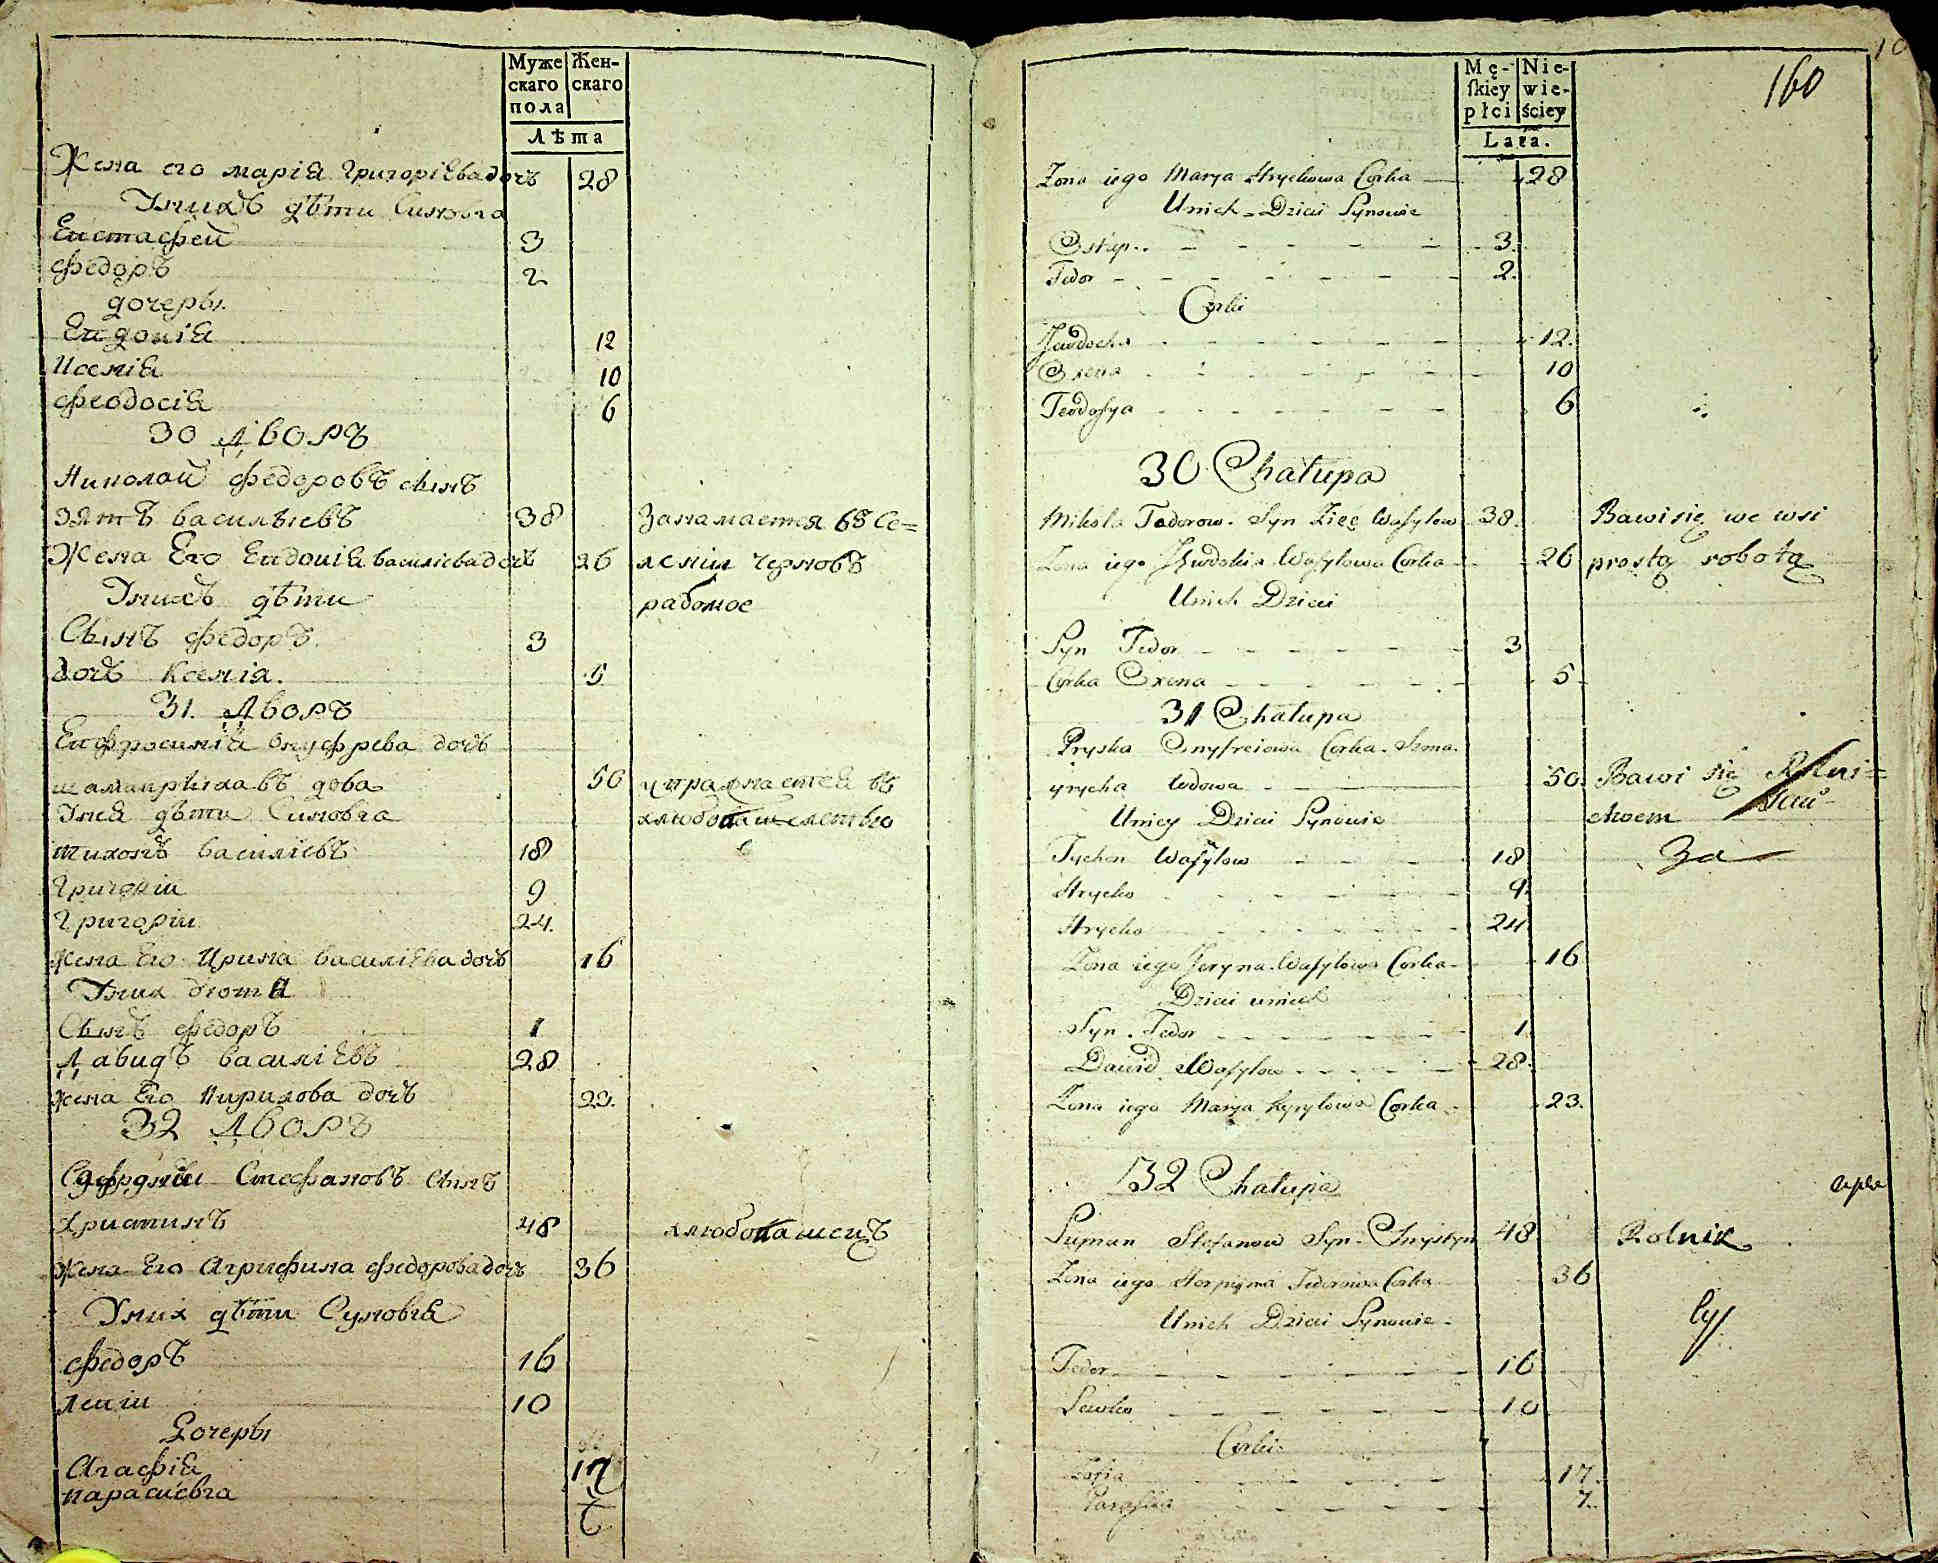 Муже
скаго
пола
Жен-
скаго
Лѣта
Жена его марія григоріева дочъ 28
Унихъ дѣти Синовѣа
Евстафей 3
Федоръ 2
дочеры.
Евдокія 12
Ксенія 10
Феодосія 6
30 Дворъ
Николай федоровъ сынъ
зятъ василіевъ 38 Занимается въ Се=
Жена Его Евдокія василіева дочъ 26 леніи черновъ
Унихъ дѣти работое
Сынъ федоръ 3
дочъ Ксенія. 5
31. Дворъ
Евфросинія Онуфрева дочъ
вдова 50 упражнаетса въ
Унея дѣти Синовѣа
тихонъ василіевъ 18
9
Григоріи 24.
жена Его Ирина василіева дочъ 16
Уних
Сынъ федоръ 1
Давидъ василіевъ 28
жена Его Кирилова дочъ 23.
32 Дворъ
Стефановъ Сынъ
Христинъ 48
Жена Его Агрифина федорова дочъ 36
Уних дѣти Суновѣа
федоръ 16
10
Дочеры
Агафія 17
парасковѣа 7
160
Mę-
ſkiey
płci
Nie-
wie-
ściey
Lata.
Zona iego Marya Hryckowa Corka 28
Unich Dzieci Synowie
Ostap 3.
Fedor 2.
Corki
Jawdocha 12.
Oxena 10
Teodosya 6
30 Chałupa
Mikoła Fedorow Syn Zięć Wasylow 38. Bawi się we wsi
Zona iego Jewdokia Wasylowa Corka 26 prostą robotą
Unich Dzieci
Syn Fedor 3
Corka Oxena 5
31 Chałupa
Pryska Onufreiowa Corka Szma
yrycha wdowa 50. Bawi się Rolni=
Uniey Dzieci Synowie ctwem
Tychon Wasylow 18
Hrycko 9.
Hrycko 24
Zona iego Jeryna Wasylowa Corka 16
Dzieci unich
Syn Fedor 1.
Dawid Wasylow 28.
Zona iego Marya Kyryłowa Corka 23.
32 Chałupa
Stefanow Syn Chrystyn 48 Rolnik
Zona iego Horpyna Fedorowa Corka 36
Unich Dzieci Synowie
Fedor 16
Lewko 10
Corki
Zofia 17.
Paraska 7.